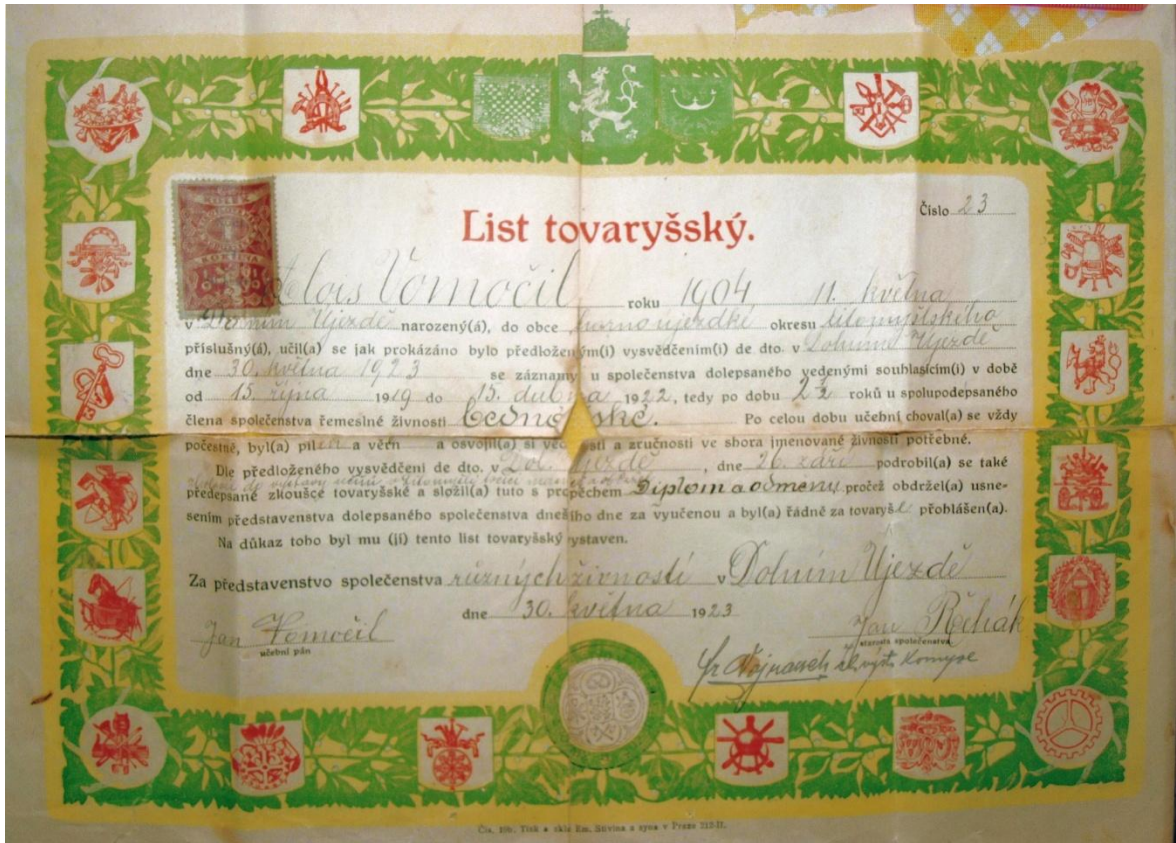 KOLEK
1
KORUNA
Číslo 23
List tovaryšský.
Alois Vomočil roku 1904 11. května
v Dolním Újezdě narozený(á), do obce hornoújezdké okresu litomyšlského
příslušný(á), učil(a) se jak prokázáno bylo předloženým(i) vysvědčením(i) de dto. v Dolním Újezdě
dne 30. května 1923 se záznamy u společenstva dolepsaného vedenými souhlasícím(i) v době
od 15. října 1919 do 15. dubna 1922, tedy po dobu 2½ roků u spolupodepsaného
člena společenstva řemeslné živnosti bednářské. Po celou dobu učební choval(a) se vždy
počestně, byl(a) pilen a věrn a osvojil(a) si vědomosti a zručnosti ve shora jmenované živnosti potřebné.
Dle předloženého vysvědčení de dto. v Dol. Újezdě, dne 26. září podrobil(a) se také
předepsané zkoušce tovaryšské a složil(a) tuto s prospěchem Diplom a odměnu pročež obdržel(a) usne-
sením představenstva dolepsaného společenstva dnešího dne za vyučenou a byl(a) řádně za tovaryše přohlášen(a).
Na důkaz toho byl mu (jí) tento list tovaryšský vystaven.
Za představenstvo společenstva různých živností v Dolním Újezdě
dne 30. května 1923
Jan Vomočil
učební pán
Jan Řehák
starosta společenstva
Čís. Tisk a skla Em. Stivína a syna v Praze 212-II.